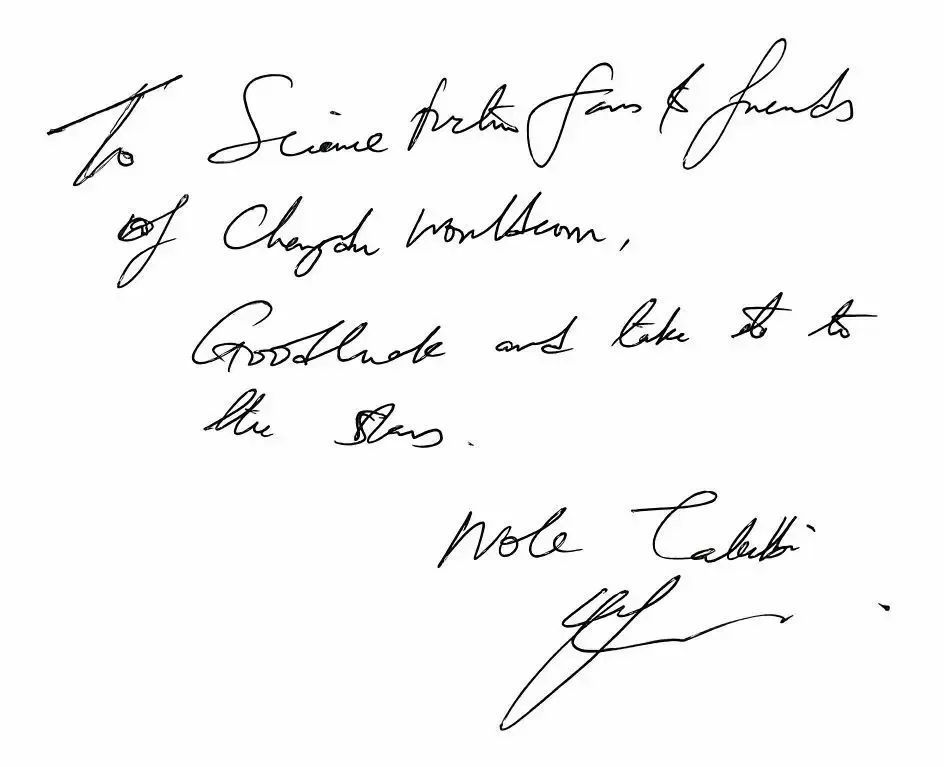 To Science fiction fans & friends
of Chengdu Worldcon,
Good luck and take it to
the stars.
Wole Talabi